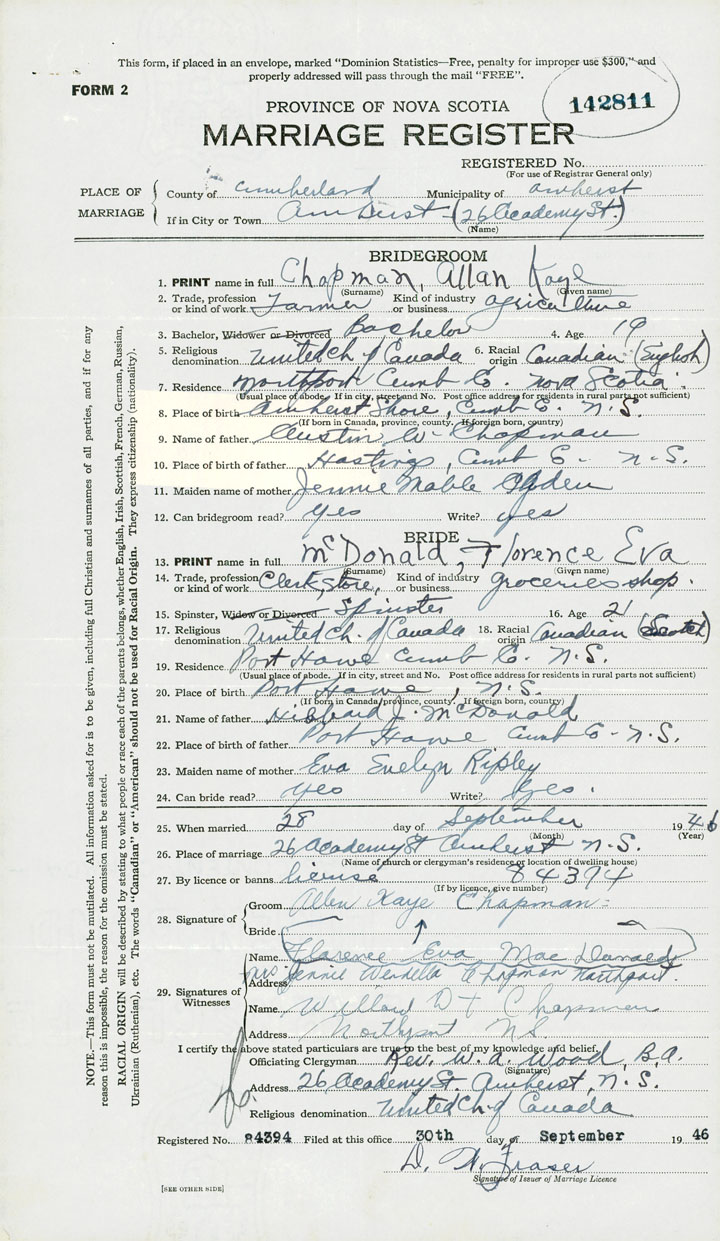 This form, if placed in an envelope, marked "Dominion Statistics—Free, penalty for improper use $300," and
properly addressed will pass through the mail "FREE".
FORM 2
142811
PROVINCE OF NOVA SCOTIA
MARRIAGE REGISTER
REGISTERED No.
(For use of Registrar General only)
PLACE OF MARRIAGE
County of Cumberland Municipality of Amherst
If in City or Town Amherst (26 Academy St.)
(Name)
BRIDEGROOM
1. PRINT name in full Chapman, Allan Kaye
(Surname) (Given name)
2. Trade, profession or kind of work Farmer Kind of industry or business agriculture
3. Bachelor, Widower or Divorced Bachelor 4. Age 19
5. Religious denomination United Ch. of Canada 6. Racial origin Canadian (English)
7. Residence Northport Cumb Co. Nova Scotia
(Usual place of abode. If in city, street and No. Post office address for residents in rural parts not sufficient)
8. Place of birth Amherst Shore, Cumb Co. N.S.
(If born in Canada, province, county. If foreign born, country)
9. Name of father Austin W. Chapman
10. Place of birth of father Hastings, Cumb Co. N.S.
11. Maiden name of mother Jennie Mable Ogden
12. Can bridegroom read? yes Write? yes
BRIDE
13. PRINT name in full McDonald, Florence Eva
(Surname) (Given name)
14. Trade, profession or kind of work Clerk, store, Kind of industry or business groceries shop.
15. Spinster, Widow or Divorced Spinster 16. Age 21
17. Religious denomination United Ch. of Canada 18. Racial origin Canadian (Scotch)
19. Residence Port Howe Cumb Co. N.S.
(Usual place of abode. If in city, street and No. Post office address for residents in rural parts not sufficient)
20. Place of birth Port Howe, N.S.
(If born in Canada, province, county. If foreign born, country)
21. Name of father Hibbard J. McDonald
22. Place of birth of father Port Howe Cumb Co. N.S.
23. Maiden name of mother Eva Evelyn Ripley
24. Can bride read? yes Write? yes.
25. When married 28 day of September 1946
(Month) (Year)
26. Place of marriage 26 Academy St Amherst N.S.
(Name of church or clergyman's residence or location of dwelling house)
27. By licence or banns license 84394
(If by licence, give number)
28. Signature of
Groom Allen Kaye Chapman
Bride
29. Signatures of Witnesses
Name Florence Eva MacDonald
Mrs Jennie Chapman Northport.
Address
Name Willard Chapman
Address Northport NS
I certify the above stated particulars are true to the best of my knowledge and belief.
Officiating Clergyman Rev. W. A. Wood, B.A.
(Signature)
Address 26 Academy St. Amherst, N.S.
Religious denomination United Ch. of Canada
Registered No. 84394 Filed at this office 30th day of September 1946
D. W. Fraser
Signature of Issuer of Marriage Licence
[SEE OTHER SIDE]
NOTE.—This form must not be mutilated. All information asked for is to be given, including full Christian and surnames of all parties, and if for any
reason this is impossible, the reason for the omission must be stated.
RACIAL ORIGIN will be described by stating to what people or race each of the parents belongs, whether English, Irish, Scottish, French, German, Russian,
Ukrainian (Ruthenian), etc. The words "Canadian" or "American" should not be used for Racial Origin. They express citizenship (nationality).